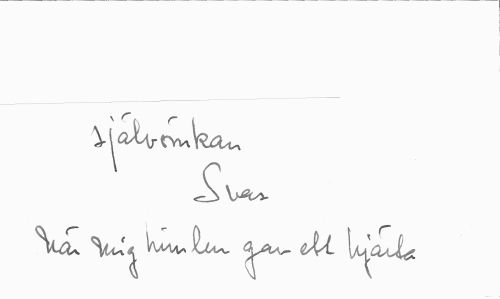 självömkan
Svar
När mig himlen gav ett hjärta